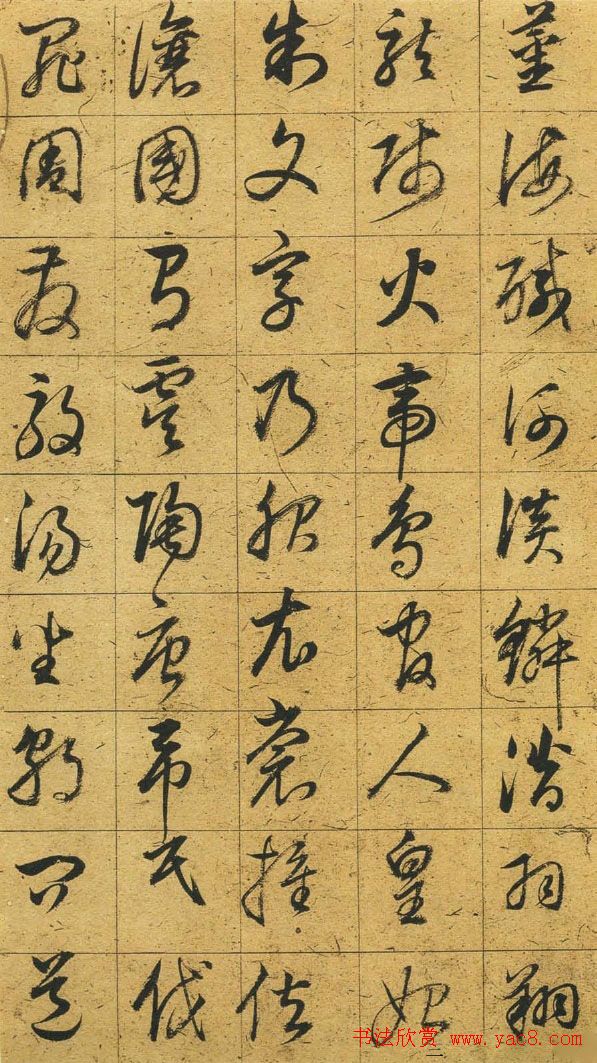 薑海醎河淡鱗潛羽翔
龍師火帝鳥官人皇始
制文字乃服衣裳推位
讓國有虞陶唐弔民伐
罪周發殷湯坐朝問道
二
书法欣赏 www.yac8.com